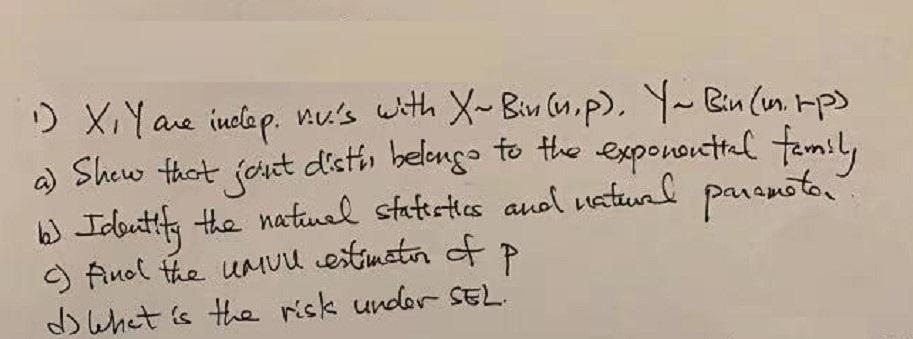 1) X, Y are indep. r.v.'s with X ~ Bin(n,p), Y ~ Bin(m, 1-p)
a) Show that joint distn belongs to the exponential family
b) Identify the natural statistics and natural parameter.
c) Find the UMVU estimator of p
d) What is the risk under SEL.